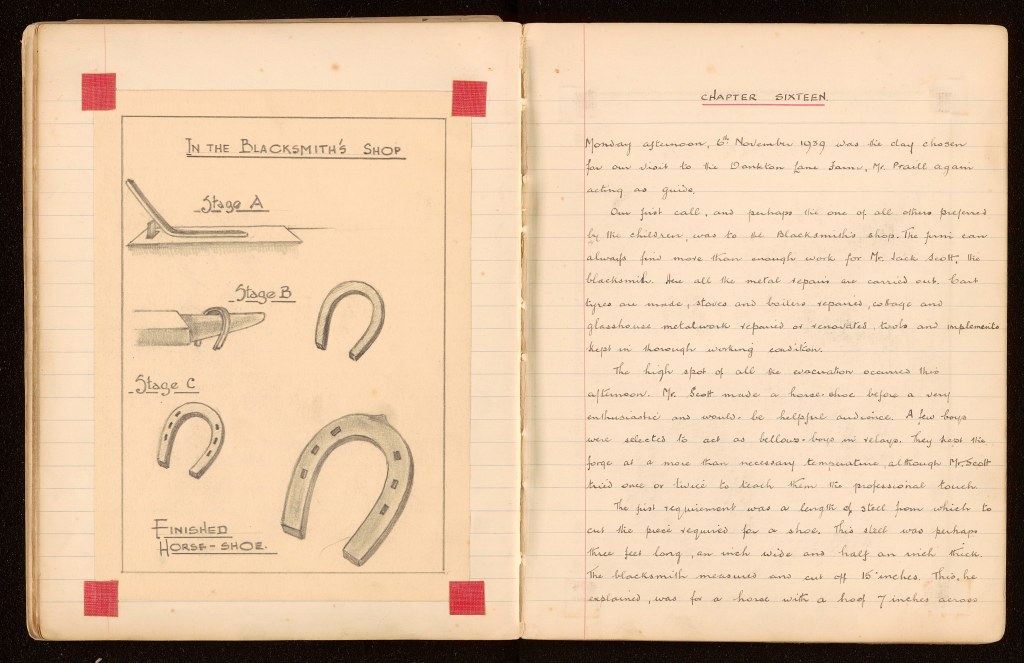 IN THE BLACKSMITH'S SHOP
Stage A
Stage B
Stage C
FINISHED
HORSE-SHOE.
CHAPTER SIXTEEN.
Monday afternoon, 6th November 1939 was the day chosen
for our visit to the Dankton Lane Farm, Mr. Praill again
acting as guide.
Our first call, and perhaps the one of all others preferred
by the children, was to the Blacksmith's shop. The firm can
always find more than enough work for Mr. Jack Scott, the
blacksmith. Here all the metal repairs are carried out. Cart
tyres are made, stoves and boilers repaired, cottage and
glasshouse metalwork repaired or renovated, tools and implements
kept in thorough working condition.
The high spot of all the evacuation occurred this
afternoon. Mr. Scott made a horse-shoe before a very
enthusiastic and would-be helpful audience. A few boys
were selected to act as bellows-boys in relays. They kept the
forge at a more than necessary temperature, although Mr. Scott
tried once or twice to teach them the professional touch.
The first requirement was a length of steel from which to
cut the piece required for a shoe. This steel was perhaps
three feet long, an inch wide and half an inch thick.
The blacksmith measured and cut off 15 inches. This, he
explained, was for a horse with a hoof 7 inches across